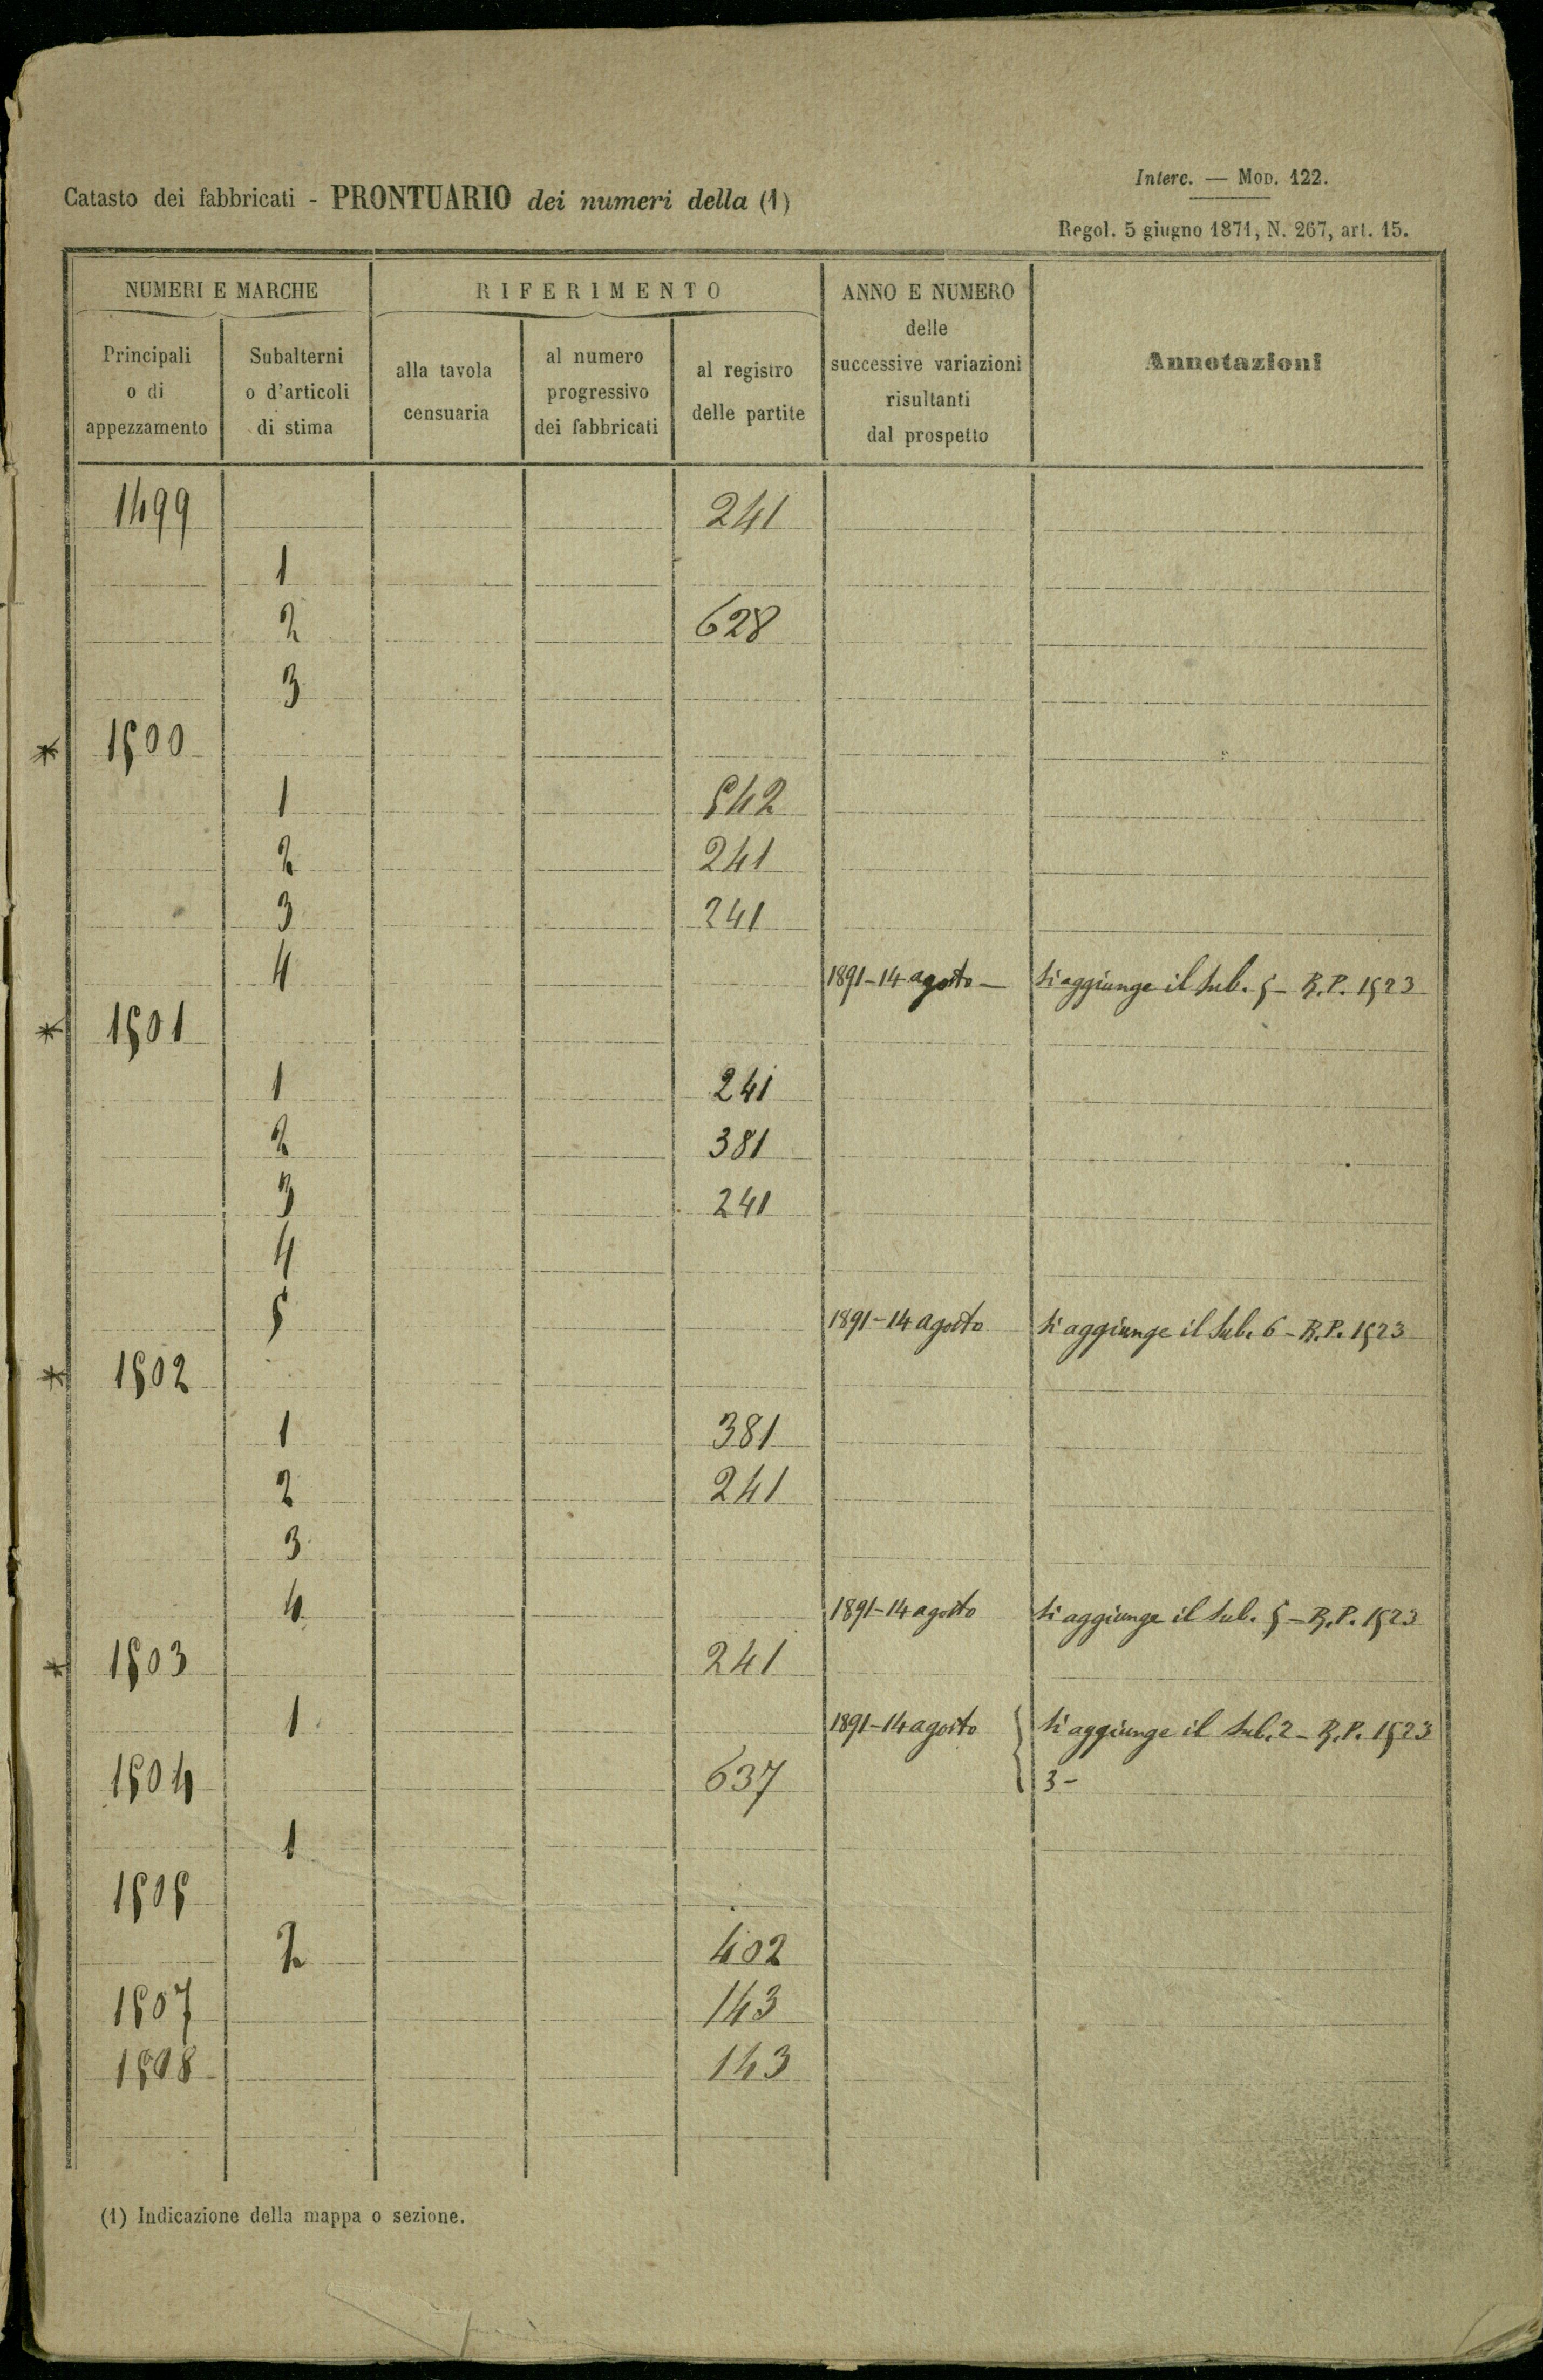 Interc. — Mod. 122.
Catasto dei fabbricati - PRONTUARIO dei numeri della (1)
Regol. 5 giugno 1871, N. 267, art. 15.
NUMERI E MARCHE
RIFERIMENTO
ANNO E NUMERO
delle
successive variazioni
risultanti
dal prospetto
Annotazioni
Principali
o di
appezzamento
Subalterni
o d'articoli
di stima
alla tavola
censuaria
al numero
progressivo
dei fabbricati
al registro
delle partite
1499 241
1
2 628
3
* 1500
1 542
2 241
3 241
4 1891-14 agosto — Si aggiunge il Sub. 5 - R.P. 1523
* 1501
1 241
2 381
3 241
4
5 1891-14 agosto Si aggiunge il Sub. 6 - R.P. 1523
* 1502
1 381
2 241
3
4 1891-14 agosto Si aggiunge il Sub. 5 - R.P. 1523
* 1503 241
1 1891-14 agosto { Si aggiunge il Sub. 2 - R.P. 1523
1504 637 3 -
1
1505
2 402
1507 143
1508 143
(1) Indicazione della mappa o sezione.